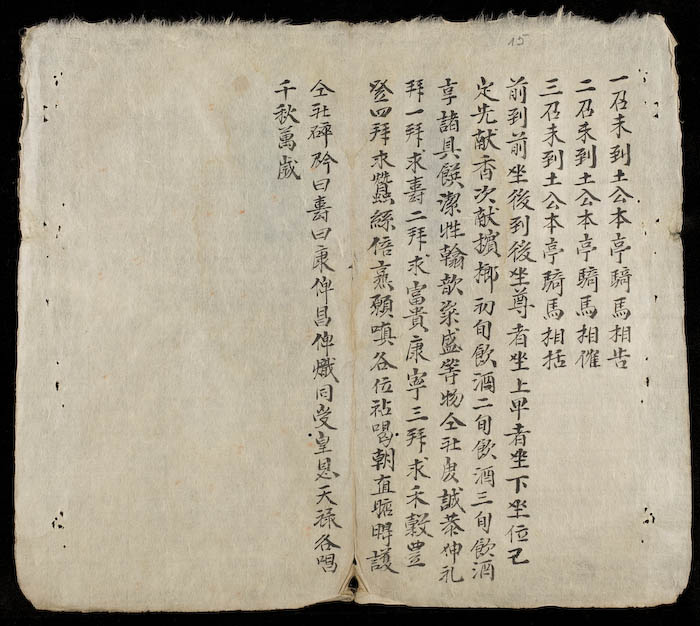 15
一召未到土公本亭騎馬相告
二召未到土公本亭騎馬相催
三召未到土公本亭騎馬相括
前到前坐後到後坐尊者坐上卑者坐下坐位已
定先献香次献擯榔初旬飲酒二旬飲酒三旬飲酒
享諸具饌潔牲翰歆粢盛等物仝社虔誠恭伸礼
拜一拜求壽二拜求富貴康寧三拜求禾穀豊
登四拜求蠶絲倍 願嗔各位 喝朝直 護
仝社碎 曰壽曰康俾昌俾熾同受皇恩天禄各唱
千秋萬歲